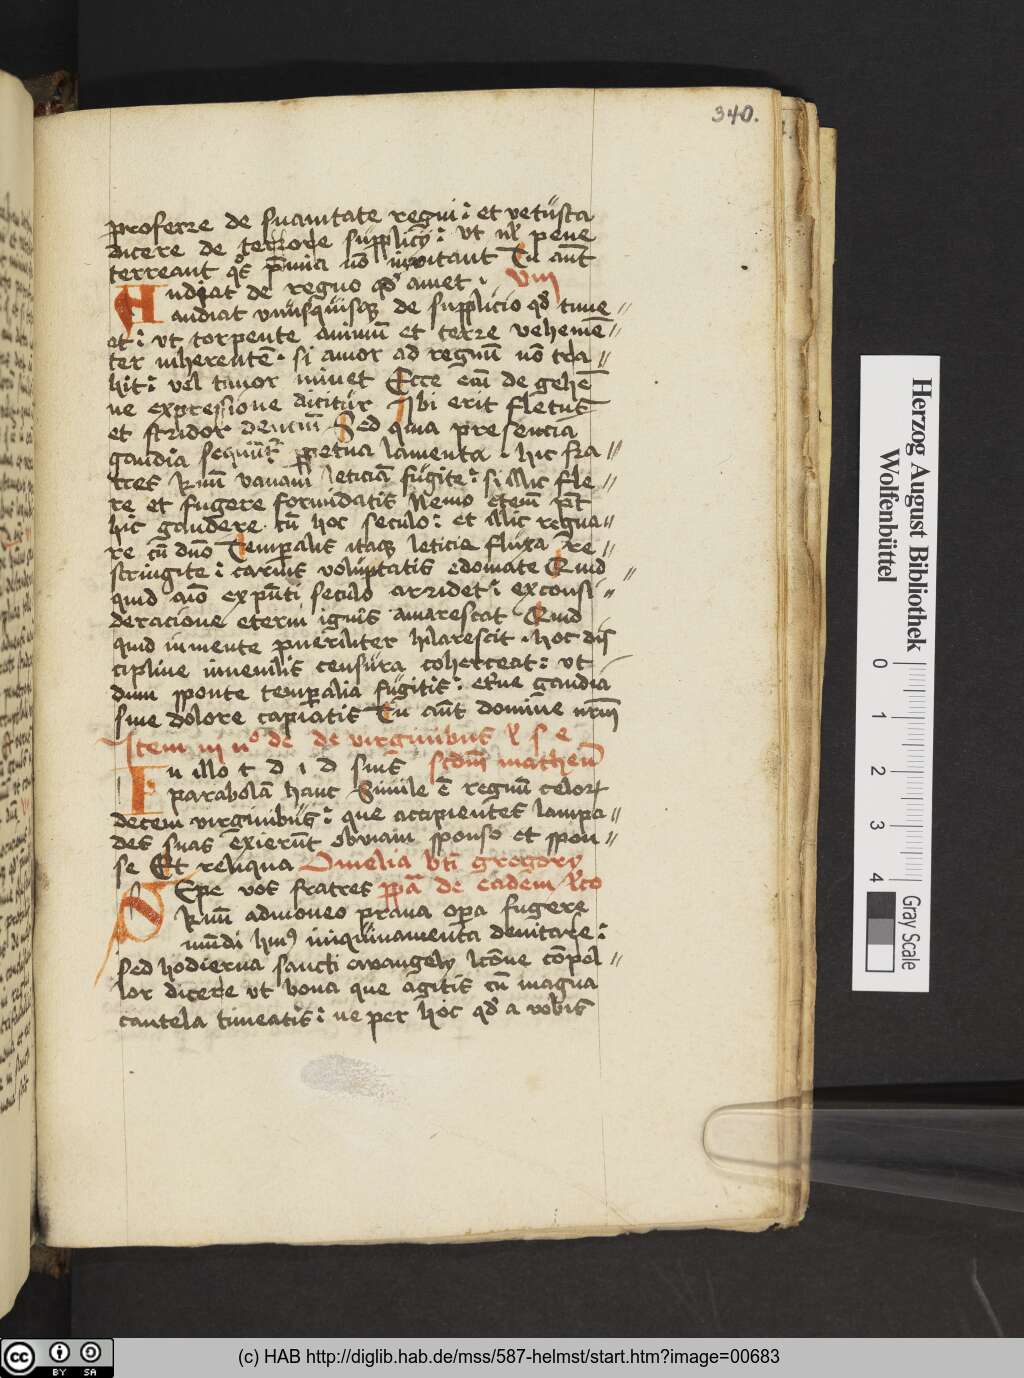 340.
proferre de suauitate regni: et vetusta
dicere de terrore supplicÿ: vt ul̕ pene
terreant q̊s p̄mia nō inuitant Tu aūt
Audiat de regno qd̕ amet · viii
audiat vnusquisqꝫ de supplicio qd̕ time //
et: vt torpente animū et terre vehemē //
ter inherentē · si amor ad regnū nō tra //
hit: vel timor minet Ecce etiā de gehē
ne expressione dicitur Ibi erit fletus
et stridor dentiū Sed quia presencia
gaudia sequūt᷑ ꝑpetua lamenta · hic fra //
tres kmī vanam leticiā fugite: si illic fle //
re et fugere formidatis Nemo eteni pt̄
hic gaudere cū hoc seculo: et illic regna //
re cū dn̄o Temꝑalis itaqꝫ leticie fluxa re //
stringite: carnis voluptatis edomate Quid //
quid aīo ex pn̄ti seculo arridet: ex consi //
deracione eterni ignis amarescat Quid
quid in mente pueriliter hilarescit · hoc dis
cipline iuuenilis censura coherceat: vt
dum sponte temꝑalia fugitis: et̕ne gaudia
sine dolore capiatis Tu aūt domine nr̄ī
Item iii nō de de virginibus ł s e
In illo t d i d suis scdm̄ matheū
parabolam hanc Simile ē regnū celoꝝ
decem virginibus: que accipientes lampa //
des suas exierūt obuiam sponso et spon //
se Et reliqua Omelia bt̄i gregorÿ
Sepe vos fratres ppā de eadem lc̄to
kmī admoneo praua oꝑa fugere
mūdi huiꝰ inquinamenta deuitare:
Sed hodierna sancti ewangelÿ lcōne cōpel //
lor dicere vt bona que agitis cū magna
cautela timeatis: ne per hoc qd̕ a vobis
Herzog August Bibliothek
Wolfenbüttel
0 1 2 3 4
Gray Scale
cc BY SA
(c) HAB http://diglib.hab.de/mss/587-helmst/start.htm?image=00683